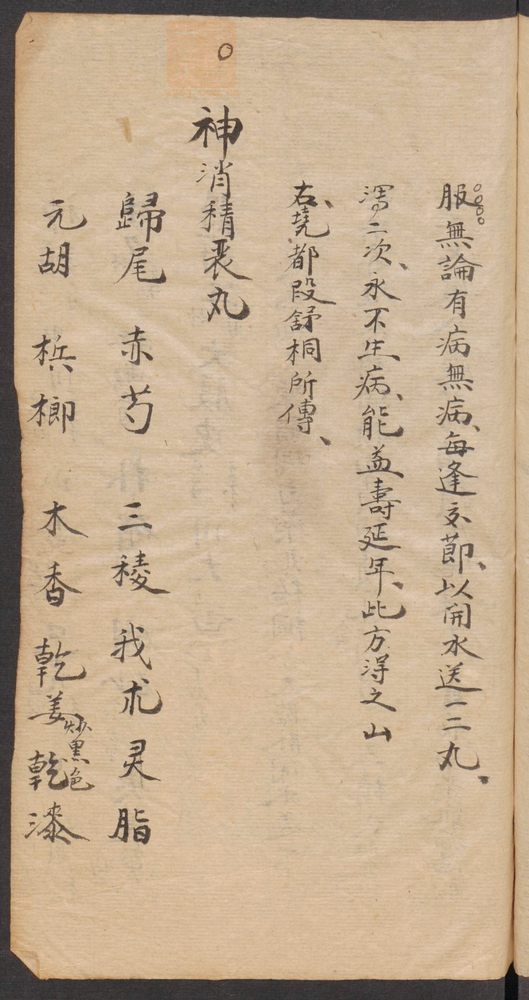 服無論有病無病、每逢交節、以開水送一二丸。
瀉二次、永不生病、能益壽延年、此方淂之山
右堯都段舒桐所傳、
神消積聚丸
歸尾 赤芍 三稜 我朮 灵脂
元胡 梹榔 木香 乾姜炒黑色 乾漆